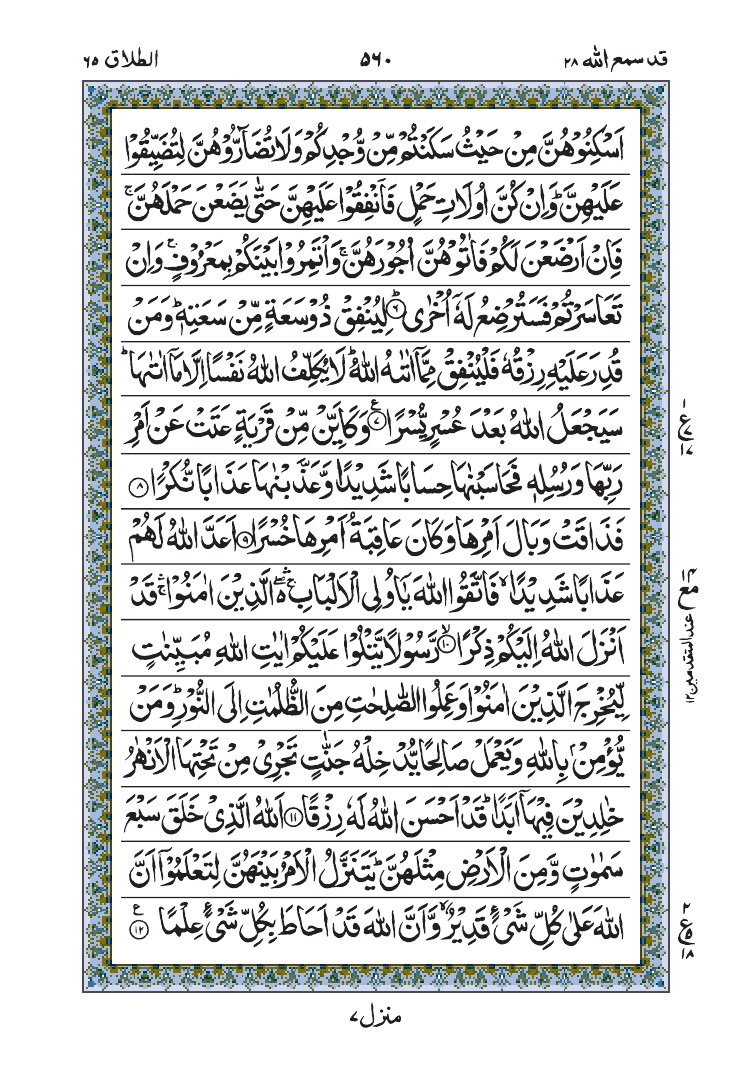 قد سمع الله ٢٨
٥٦٠
الطلاق ٦٥
اَسْكِنُوْهُنَّ مِنْ حَيْثُ سَكَنْتُمْ مِّنْ وُّجْدِكُمْ وَلَا تُضَآرُّوْهُنَّ لِتُضَيِّقُوْا
عَلَيْهِنَّ ؕ وَاِنْ كُنَّ اُولَاتِ حَمْلٍ فَاَنْفِقُوْا عَلَيْهِنَّ حَتّٰى يَضَعْنَ حَمْلَهُنَّ ۚ
فَاِنْ اَرْضَعْنَ لَكُمْ فَاٰتُوْهُنَّ اُجُوْرَهُنَّ ۚ وَاْتَمِرُوْا بَيْنَكُمْ بِمَعْرُوْفٍ ۚ وَاِنْ
تَعَاسَرْتُمْ فَسَتُرْضِعُ لَهٗۤ اُخْرٰى ؕ ﴿٦﴾ لِيُنْفِقْ ذُوْ سَعَةٍ مِّنْ سَعَتِهٖ ؕ وَمَنْ
قُدِرَ عَلَيْهِ رِزْقُهٗ فَلْيُنْفِقْ مِمَّاۤ اٰتٰىهُ اللّٰهُ ؕ لَا يُكَلِّفُ اللّٰهُ نَفْسًا اِلَّا مَاۤ اٰتٰىهَا ؕ
سَيَجْعَلُ اللّٰهُ بَعْدَ عُسْرٍ يُّسْرًا ﴿٧﴾ ع وَكَاَيِّنْ مِّنْ قَرْيَةٍ عَتَتْ عَنْ اَمْرِ
رَبِّهَا وَرُسُلِهٖ فَحَاسَبْنٰهَا حِسَابًا شَدِيْدًا ۙ وَّعَذَّبْنٰهَا عَذَابًا نُّكْرًا ﴿٨﴾
فَذَاقَتْ وَبَالَ اَمْرِهَا وَكَانَ عَاقِبَةُ اَمْرِهَا خُسْرًا ﴿٩﴾ اَعَدَّ اللّٰهُ لَهُمْ
عَذَابًا شَدِيْدًا ۙ فَاتَّقُوا اللّٰهَ يٰۤاُولِى الْاَلْبَابِ ۛۖۚ الَّذِيْنَ اٰمَنُوْا ۛؕ قَدْ
اَنْزَلَ اللّٰهُ اِلَيْكُمْ ذِكْرًا ۙ ﴿١٠﴾ رَّسُوْلًا يَّتْلُوْا عَلَيْكُمْ اٰيٰتِ اللّٰهِ مُبَيِّنٰتٍ
لِّيُخْرِجَ الَّذِيْنَ اٰمَنُوْا وَعَمِلُوا الصّٰلِحٰتِ مِنَ الظُّلُمٰتِ اِلَى النُّوْرِ ؕ وَمَنْ
يُّؤْمِنْۢ بِاللّٰهِ وَيَعْمَلْ صَالِحًا يُّدْخِلْهُ جَنّٰتٍ تَجْرِىْ مِنْ تَحْتِهَا الْاَنْهٰرُ
خٰلِدِيْنَ فِيْهَاۤ اَبَدًا ؕ قَدْ اَحْسَنَ اللّٰهُ لَهٗ رِزْقًا ﴿١١﴾ اَللّٰهُ الَّذِىْ خَلَقَ سَبْعَ
سَمٰوٰتٍ وَّمِنَ الْاَرْضِ مِثْلَهُنَّ ؕ يَتَنَزَّلُ الْاَمْرُ بَيْنَهُنَّ لِتَعْلَمُوْۤا اَنَّ
اللّٰهَ عَلٰى كُلِّ شَىْءٍ قَدِيْرٌ ۙ وَّاَنَّ اللّٰهَ قَدْ اَحَاطَ بِكُلِّ شَىْءٍ عِلْمًا ﴿١٢﴾ ع
١
ع ٧
١٧
١٤
مع
عند المتقدمين ١٢
٢
ع ٥
١٨
منزل ٧